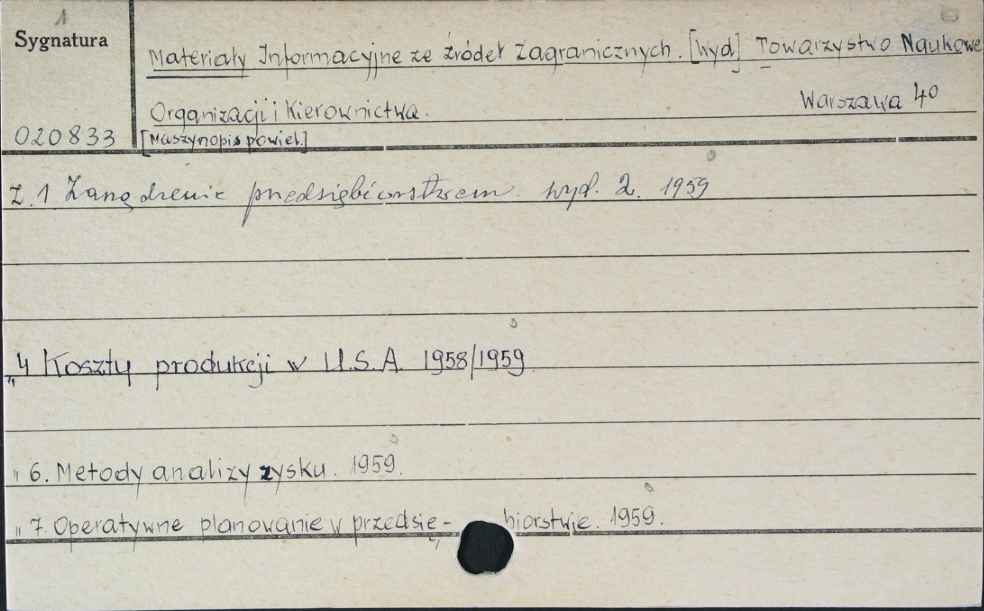 1
Sygnatura
Materiały Informacyjne ze źródeł Zagranicznych. [Wyd] Towarzystwo Naukowe
Organizacji i Kierownictwa. Warszawa 40
020833 [Maszynopis powiel.]
Z. 1 Zarządzenie przedsiębiorstwem. wyd. 2. 1959
„ 4 Koszty produkcji w U.S.A. 1958/1959
„ 6. Metody analizy zysku. 1959.
„ 7. Operatywne planowanie w przedsię- biorstwie. 1959.